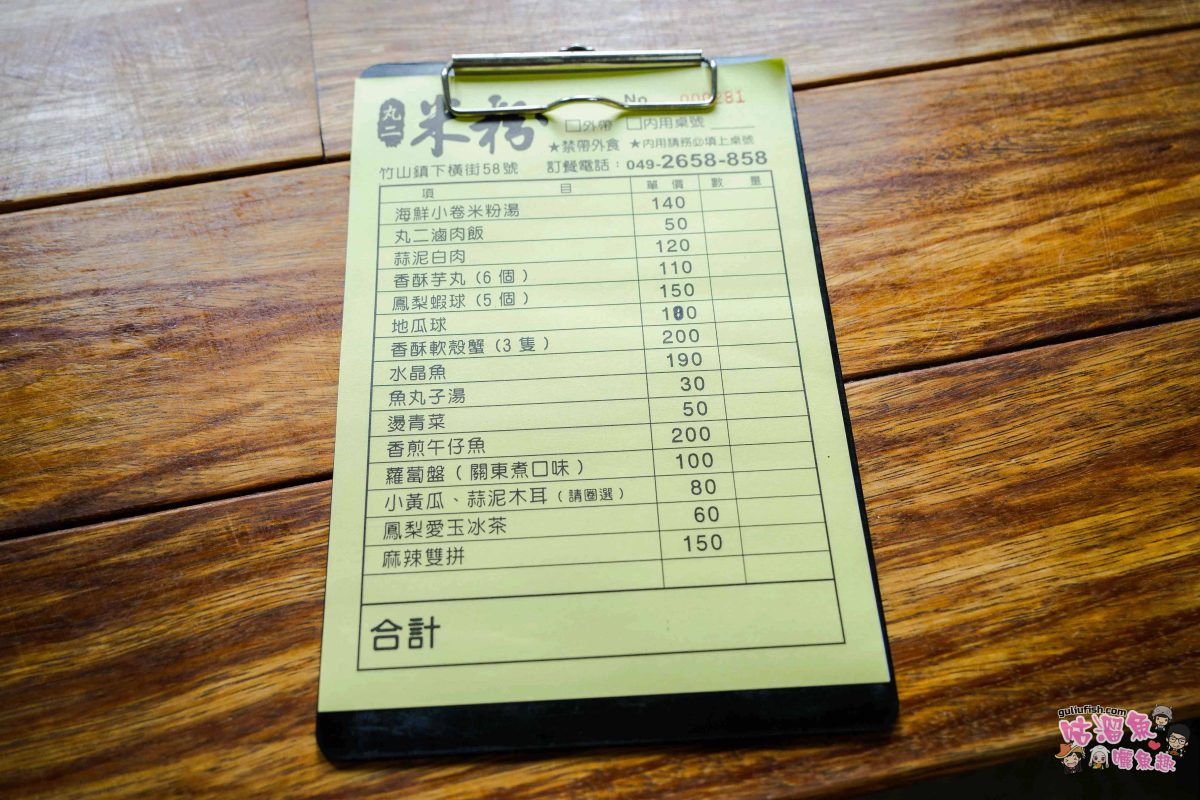 丸二 米粉
No 000281
□外帶 □內用桌號
★禁帶外食 ★內用請務必填上桌號
竹山鎮下橫街58號 訂餐電話：049-2658-858
項目 單價 數量
海鮮小卷米粉湯 140
丸二滷肉飯 50
蒜泥白肉 120
香酥芋丸(6個) 110
鳳梨蝦球(5個) 150
地瓜球
香酥軟殼蟹(3隻) 200
水晶魚 190
魚丸子湯 30
燙青菜 50
香煎午仔魚 200
蘿蔔盤(關東煮口味) 100
小黃瓜、蒜泥木耳(請圈選) 80
鳳梨愛玉冰茶 60
麻辣雙拼 150
合計
guliufish.com
咕溜魚
曬魚趣